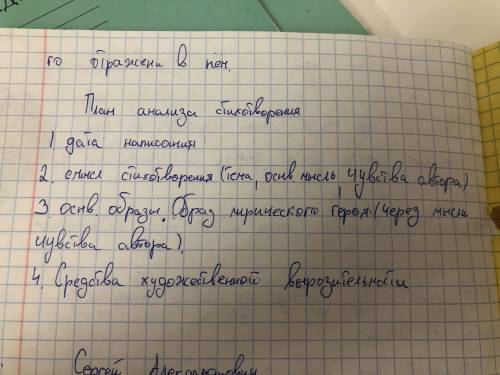 то отражени в пен.
План анализа стихотворения
1. дата написания
2. смысл стихотворения (тема, осн мысль, чувства автора)
3. осн. образы. Образ лирического героя (через мысли
чувства автора).
4. Средства художественной вырозительности
Сергей Александрович